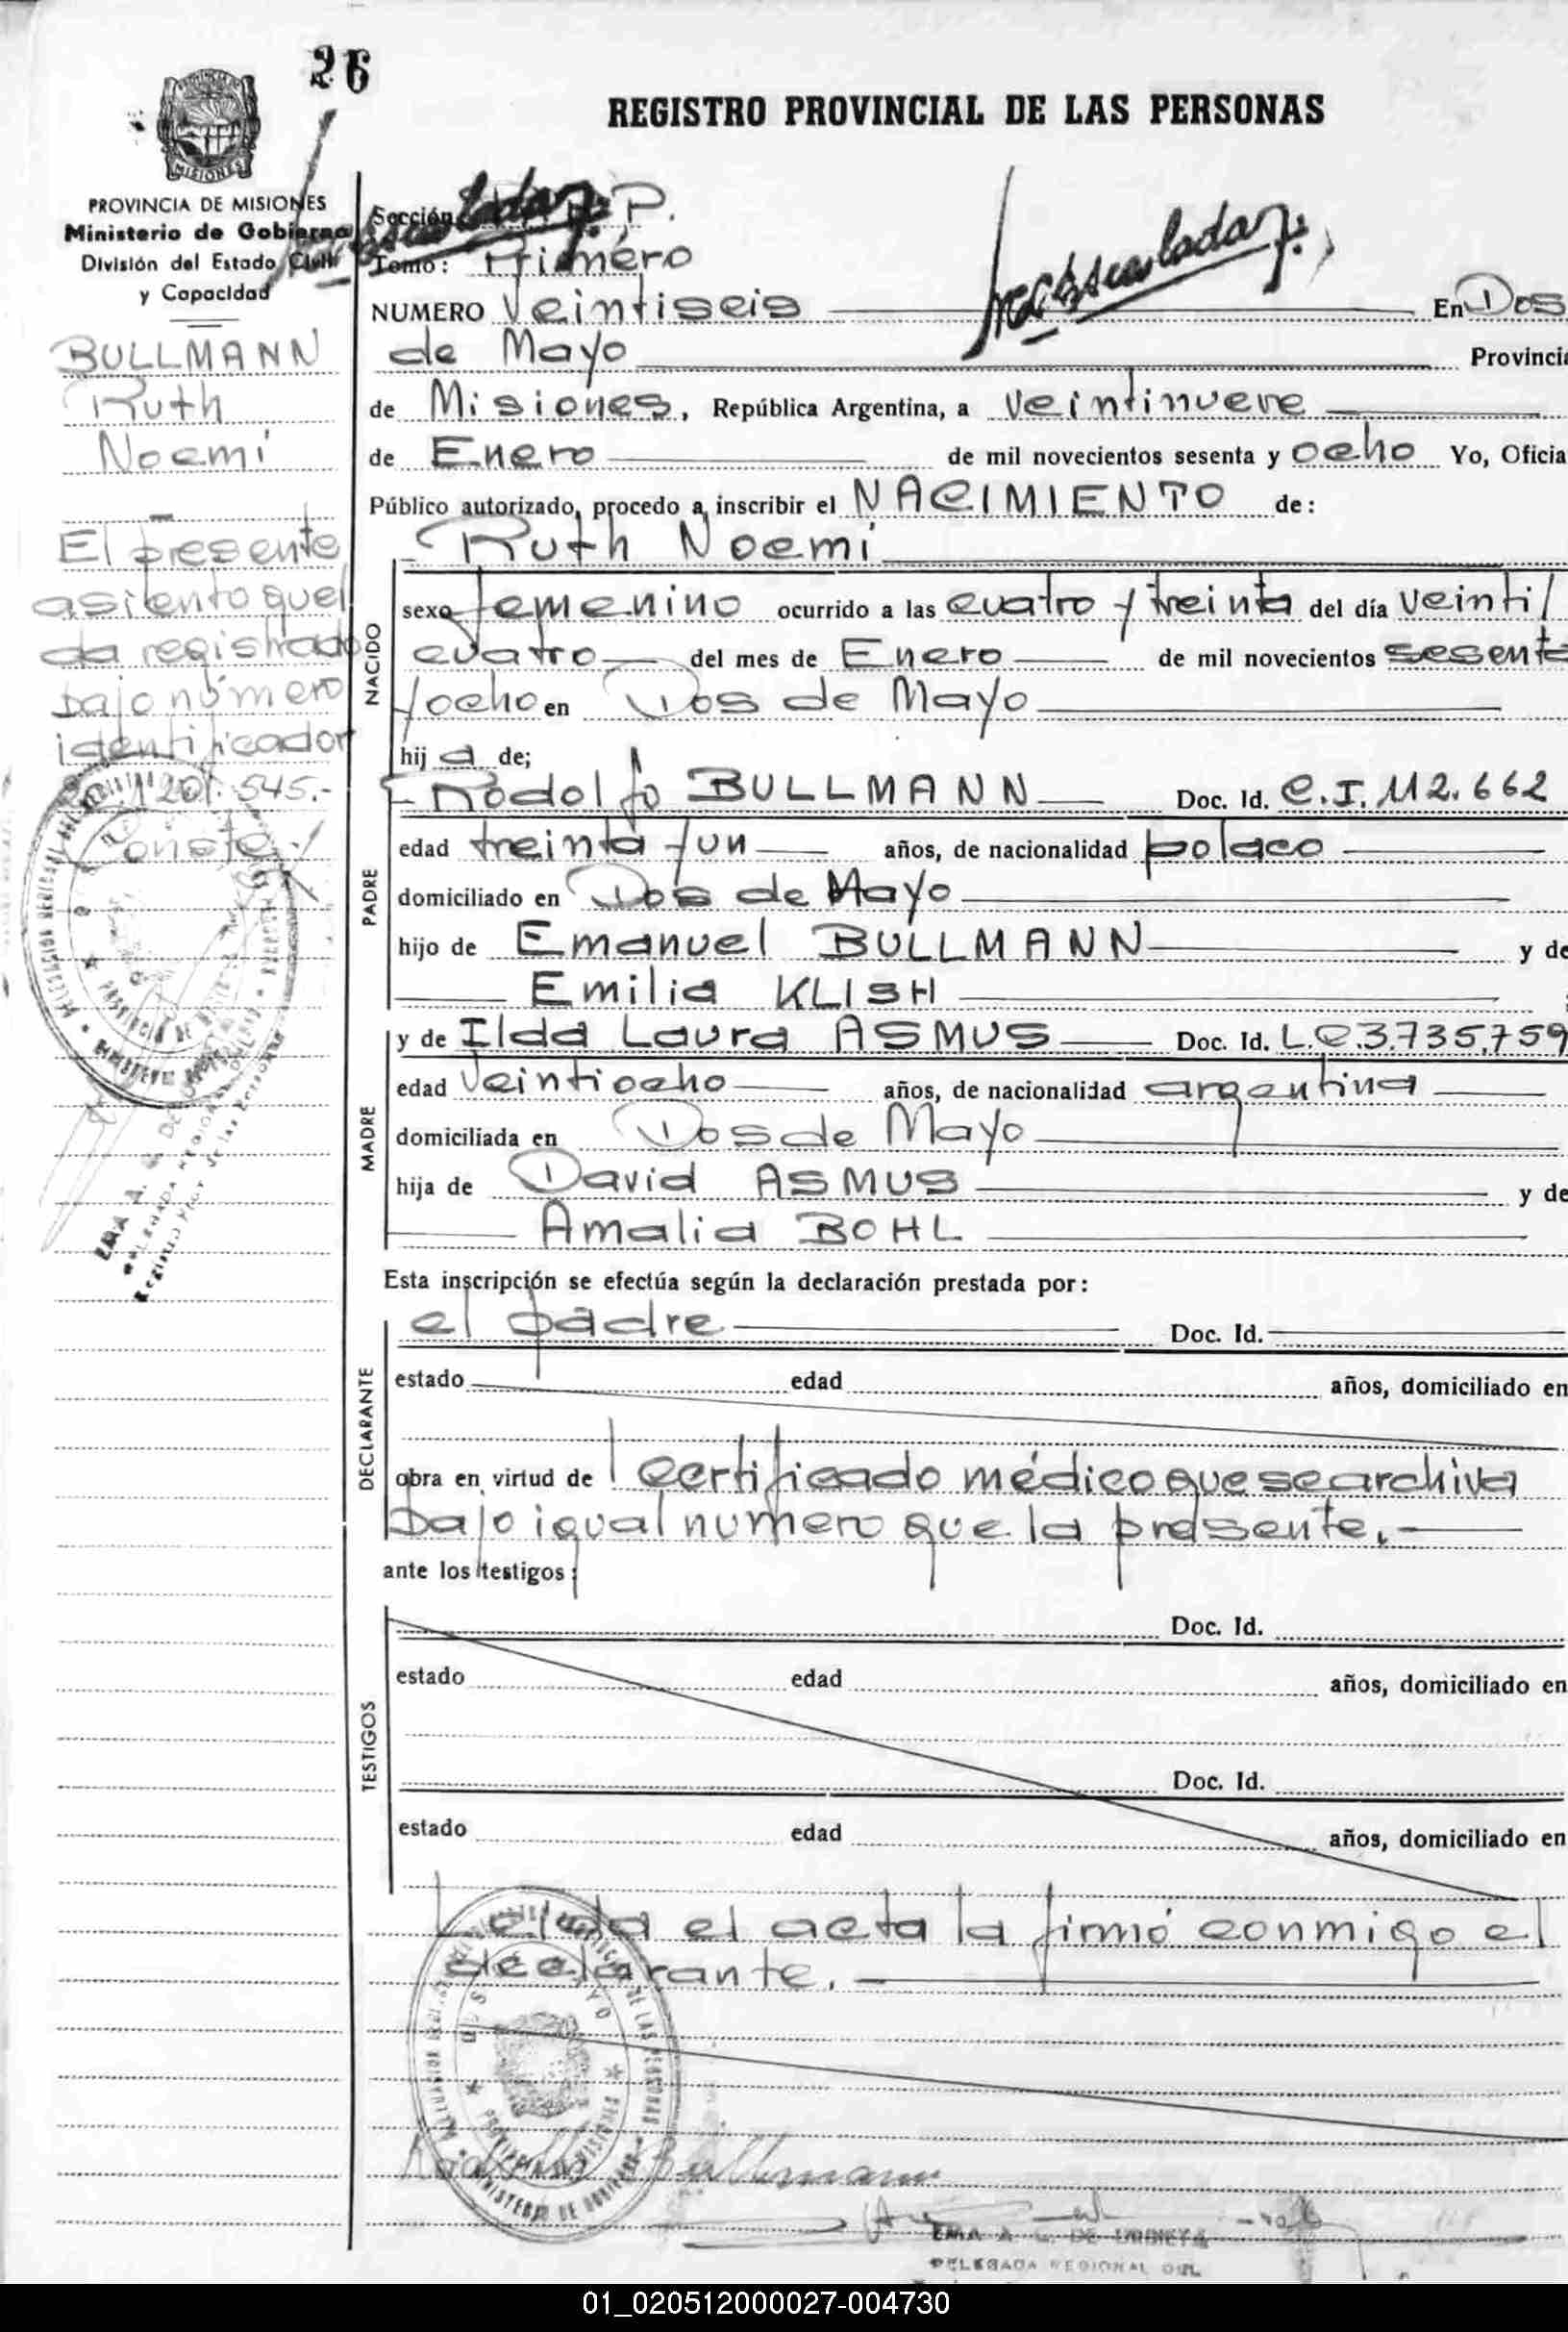 26
REGISTRO PROVINCIAL DE LAS PERSONAS
MISIONES
PROVINCIA DE MISIONES
Ministerio de Gobierno
División del Estado Civil
y Capacidad
BULLMANN
Ruth
Noemí
El presente
asiento quel
da registrado
bajo número
identificador
201.545.-
Conste
Sección P.
Tomo: Primero
NUMERO Veintiseis En Dos
de Mayo Provincia
de Misiones, República Argentina, a veintinueve
de Enero de mil novecientos sesenta y ocho Yo, Oficia
Público autorizado, procedo a inscribir el NACIMIENTO de:
Ruth Noemí
NACIDO
sexo femenino ocurrido a las cuatro y treinta del día veinti
cuatro del mes de Enero de mil novecientos sesenta
y ocho en Dos de Mayo
hij a de;
PADRE
Rodolfo BULLMANN Doc. Id. C.I. 112.662
edad treinta y un años, de nacionalidad polaco
domiciliado en Dos de Mayo
hijo de Emanuel BULLMANN y de
Emilia KLISH
MADRE
y de Ilda Laura ASMUS Doc. Id. L.C.3.735.759
edad veintiocho años, de nacionalidad argentina
domiciliada en Dos de Mayo
hija de David ASMUS y de
Amalia BOHL
Esta inscripción se efectúa según la declaración prestada por:
DECLARANTE
el padre Doc. Id.
estado edad años, domiciliado en
obra en virtud de l certificado médico que se archiva
bajo igual numero que la presente.
ante los testigos
TESTIGOS
Doc. Id.
estado edad años, domiciliado en
Doc. Id.
estado edad años, domiciliado en
Leida el acta la firmó conmigo el
declarante.
Rodolfo Bullmann
DELEGADA REGIONAL DEL
01_020512000027-004730